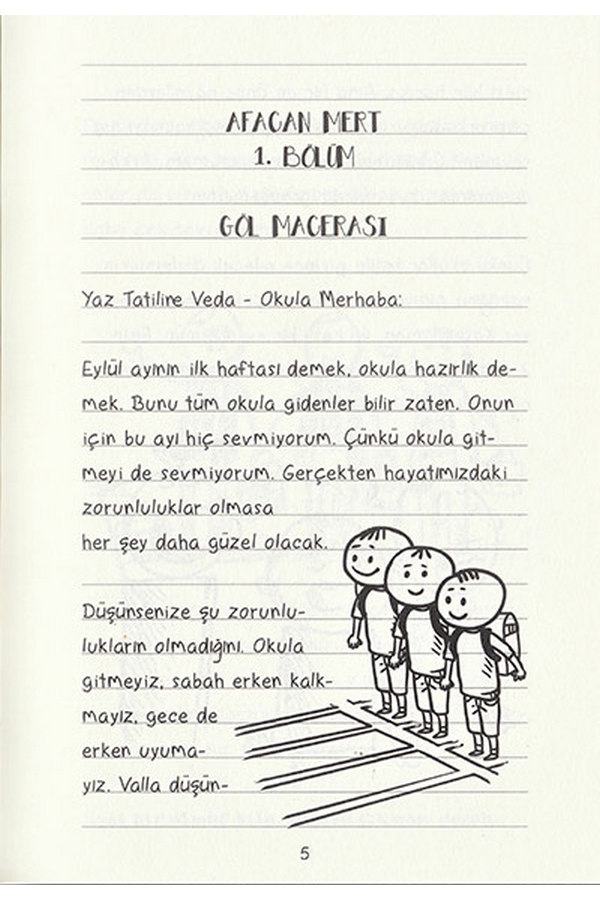 AFACAN MERT
1. BÖLÜM
GÖL MACERASI
Yaz Tatiline Veda - Okula Merhaba:
Eylül ayının ilk haftası demek, okula hazırlık de-
mek. Bunu tüm okula gidenler bilir zaten. Onun
için bu ayı hiç sevmiyorum. Çünkü okula git-
meyi de sevmiyorum. Gerçekten hayatımızdaki
zorunluluklar olmasa
her şey daha güzel olacak.
Düşünsenize şu zorunlu-
lukların olmadığını. Okula
gitmeyiz, sabah erken kalk-
mayız, gece de
erken uyuma-
yız. Valla düşün-
5